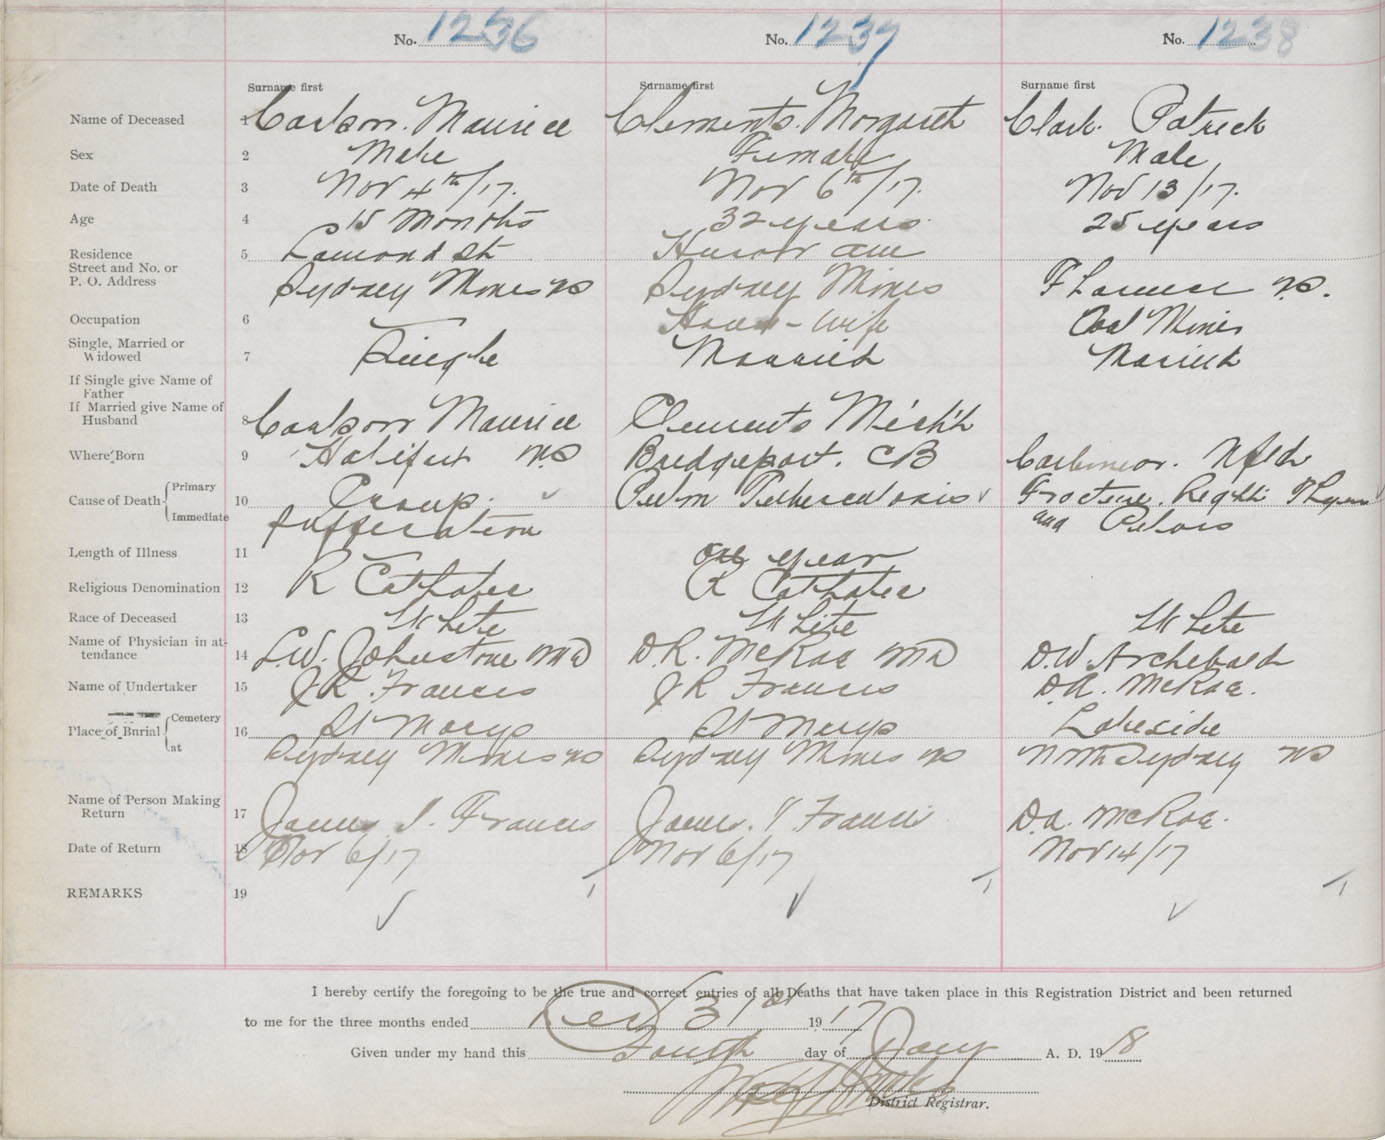 No. 1236 No. 1237 No. 1238
Surname first Surname first Surname first
Name of Deceased 1 Maurice Clements. Morgareth Clark. Patrick
Sex 2 Male Female Male
Date of Death 3 Nov 4th/17. Nov 6th/17. Nov 13/17.
Age 4 15 Months 32 years 25 years
Residence 5 Lamond St Huron ave
Street and No. or
P. O. Address Sydney Mines NS Sydney Mines Florence NS.
Occupation 6 House-Wife Coal Miner
Single, Married or
Widowed 7 Single Married Married
If Single give Name of
Father
If Married give Name of
Husband 8 Maurice Clements
Where Born 9 Halifax NS Bridgeport. CB Carbonear. Nfld
Cause of Death { Primary 10 Croup. Pulm Tuberculosis Fracture. Right
Immediate Suffocation and Pelvis
Length of Illness 11 One year
Religious Denomination 12 R Catholic R Catholic
Race of Deceased 13 White White White
Name of Physician in at-
tendance 14 L.W. Johnstone MD D.R. McRae MD D.W. Archebald
Name of Undertaker 15 J R. Francis J R Francis D.A. McRae.
Place of Burial { Cemetery 16 St Marys St Marys Lakeside
at Sydney Mines NS Sydney Mines NS North Sydney NS
Name of Person Making
Return 17 James J. Francis James. J Francis D.A. McRae.
Date of Return 18 Nov 6/17 Nov 6/17 Nov 14/17
REMARKS 19
I hereby certify the foregoing to be the true and correct entries of all Deaths that have taken place in this Registration District and been returned
to me for the three months ended Dec 31st 1917
Given under my hand this Fourth day of Jany A. D. 1918
District Registrar.